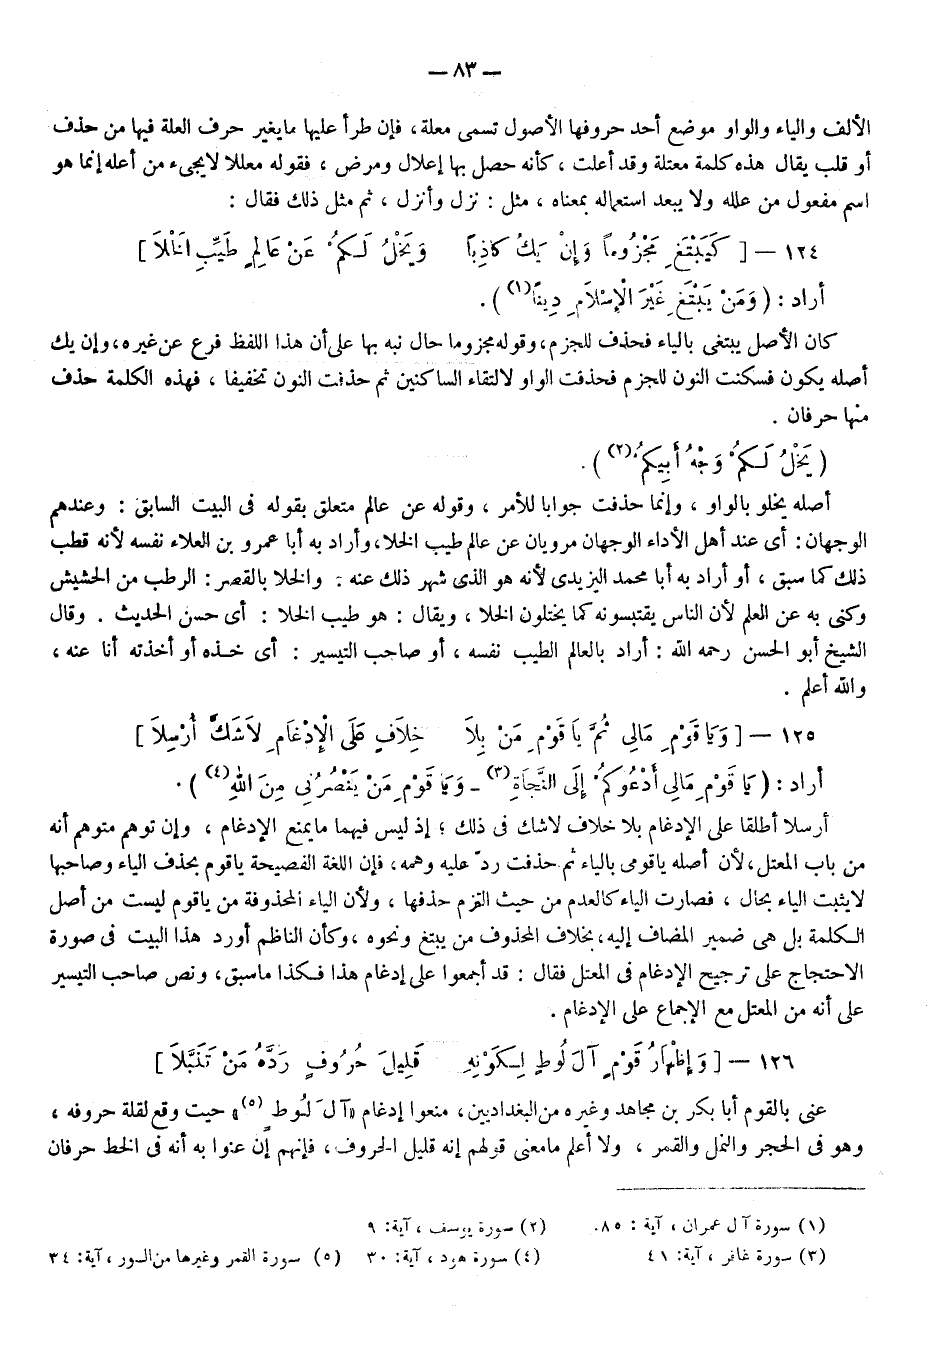 — ٨٣ —
الألف والياء والواو موضع أحد حروفها الأصول تسمى معلة، فإن طرأ عليها مايغير حرف العلة فيها من حذف
أو قلب يقال هذه كلمة معتلة وقد أعلت، كأنه حصل بها إعلال ومرض، فقوله معللا لايجىء من أعله إنما هو
اسم مفعول من علله ولا يبعد استعماله بمعناه، مثل: نزل وأنزل، ثم مثل ذلك فقال:
١٢٤ — [ كَيَبْتَغِ مَجْزُوماً وَإِنْ يَكُ كاذِباً وَيَخْلُ لَكُمْ عَنْ عَالِمٍ طَيِّبِ الْخَلاَ ]
أراد: ( وَمَنْ يَبْتَغِ غَيْرَ الْإِسْلَامِ دِيناً(١) ).
كان الأصل يبتغى بالياء فحذف للجزم، وقوله مجزوما حال نبه بها على أن هذا اللفظ فرع عن غيره، وإن يك
أصله يكون فسكنت النون للجزم فحذفت الواو لالتقاء الساكنين ثم حذفت النون تخفيفا، فهذه الكلمة حذف
منها حرفان.
( يَخْلُ لَكُمْ وَجْهُ أَبِيكُمْ(٢) ).
أصله يخلو بالواو، وإنما حذفت جوابا للأمر، وقوله عن عالم متعلق بقوله فى البيت السابق: وعندهم
الوجهان: أى عند أهل الأداء الوجهان مرويان عن عالم طيب الخلا، وأراد به أبا عمرو بن العلاء نفسه لأنه قطب
ذلك كما سبق، أو أراد به أبا محمد اليزيدى لأنه هو الذى شهر ذلك عنه: والخلا بالقصر: الرطب من الحشيش
وكنى به عن العلم لأن الناس يقتبسونه كما يختلون الخلا، ويقال: هو طيب الخلا: أى حسن الحديث. وقال
الشيخ أبو الحسن رحمه الله: أراد بالعالم الطيب نفسه، أو صاحب التيسير: أى خذه أو أخذته أنا عنه،
والله أعلم.
١٢٥ — [ وَيَا قَوْمِ مَالِى ثُمَّ يَا قَوْمِ مَنْ بِلاَ خِلَافٍ عَلَى الْإِدْغَامِ لاَشَكَّ أُرْسِلاَ ]
أراد: ( يَا قَوْمِ مَالِى أَدْعُوكُمْ إِلَى النَّجَاةِ(٣) ـ وَيَا قَوْمِ مَنْ يَنْصُرُنِى مِنَ اللهِ(٤) ).
أرسلا أطلقا على الإدغام بلا خلاف لاشك فى ذلك؛ إذ ليس فيهما مايمنع الإدغام، وإن توهم متوهم أنه
من باب المعتل، لأن أصله ياقومى بالياء ثم حذفت ردّ عليه وهمه، فإن اللغة الفصيحة ياقوم بحذف الياء وصاحبها
لايثبت الياء بحال، فصارت الياء كالعدم من حيث التزم حذفها، ولأن الياء المحذوفة من ياقوم ليست من أصل
الكلمة بل هى ضمير المضاف إليه، بخلاف المحذوف من يبتغ ونحوه، وكأن الناظم أورد هذا البيت فى صورة
الاحتجاج على ترجيح الإدغام فى المعتل فقال: قد أجمعوا على إدغام هذا فكذا ماسبق، ونص صاحب التيسير
على أنه من المعتل مع الإجماع على الإدغام.
١٢٦ — [ وَإِظْهَارُ قَوْمٍ آلَ لُوطٍ لِكَوْنِهِ قَلِيلَ حُرُوفٍ رَدَّهُ مَنْ تَنَبَّلاَ ]
عنى بالقوم أبا بكر بن مجاهد وغيره من البغداديين، منعوا إدغام «آلَ لُوطٍ(٥)» حيث وقع لقلة حروفه،
وهو فى الحجر والنمل والقمر، ولا أعلم مامعنى قولهم إنه قليل الحروف، فإنهم إن عنوا به أنه فى الخط حرفان
(١) سورة آل عمران، آية: ٨٥. (٢) سورة يوسف، آية: ٩
(٣) سورة غافر، آية: ٤١ (٤) سورة هود، آية: ٣٠ (٥) سورة القمر وغيرها من السور، آية: ٣٤